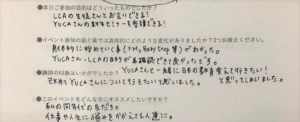 ●本日ご参加の目的はどういったものでしたか?
・LCAの生徒さんとお会いできる!
・YUCAさんの数年セミナーを受講できる!
●イベント参加の前と後では具体的にどのような変化がありましたか?3つお教えください。
具体的に始めていく事(SNS, Baby Step 等)がわかった。
YUCAさん、LCAの目的が再確認できて良かったです。
●講師の印象はいかがでしたか? YUCAさんと一緒に日本の教育変えて行きたい!
改めてYUCAさんについて行きたいと思いました。 と思ってしまいました。
●このイベントをどんな方にオススメしたいですか?
私の同年代の友だち。
仕事や人生に悩みをかかえてる人達に。